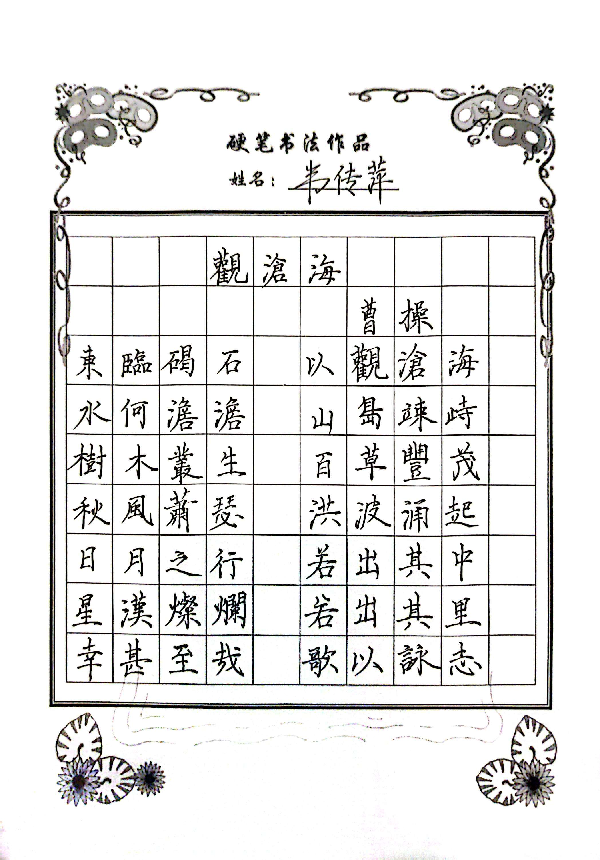 硬笔书法作品
姓名：韦传萍
觀滄海
曹操
東臨碣石 以觀滄海
水何澹澹 山島竦峙
樹木叢生 百草豐茂
秋風蕭瑟 洪波涌起
日月之行 若出其中
星漢燦爛 若出其里
幸甚至哉 歌以詠志